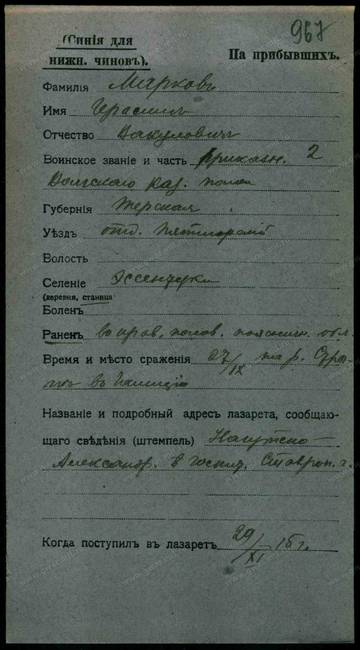 967
(Синія для
нижн. чиновъ). На прибывшихъ.
Фамилія Марковъ
Имя Герасимъ
Отчество Вакуловичъ
Воинское званіе и часть приказн. 2
Волгскаго каз. полка
Губернія Терская
Уѣздъ отд. Пятигорскій
Волость
Селеніе Эссентуки
(деревня, станица)
Боленъ
Раненъ въ прав. полов. пояснич. обл.
Время и мѣсто сраженія 27/IX на р. Стры-
пѣ въ Галиціи
Названіе и подробный адресъ лазарета, сообщаю-
щаго свѣдѣнія (штемпель)
Александр. в госпит. Ставроп. г.
Когда поступилъ въ лазаретъ 29/XI 15 г.